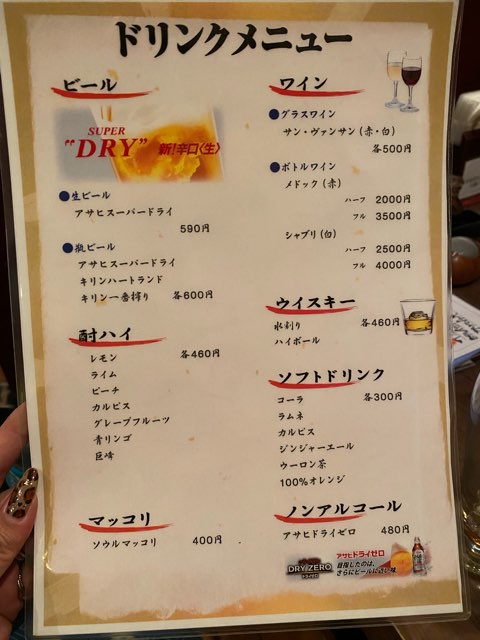 ドリンクメニュー
ビール
SUPER
"DRY" 新!辛口〈生〉
●生ビール
アサヒスーパードライ
590円
●瓶ビール
アサヒスーパードライ
キリンハートランド
キリン一番搾り 各600円
酎ハイ
レモン 各460円
ライム
ピーチ
カルピス
グレープフルーツ
青リンゴ
巨峰
マッコリ
ソウルマッコリ 400円
ワイン
●グラスワイン
サン・ヴァンサン(赤・白)
各500円
●ボトルワイン
メドック(赤)
ハーフ 2000円
フル 3500円
シャブリ(白)
ハーフ 2500円
フル 4000円
ウイスキー
水割り 各460円
ハイボール
ソフトドリンク
コーラ 各300円
ラムネ
カルピス
ジンジャーエール
ウーロン茶
100%オレンジ
ノンアルコール
アサヒドライゼロ 480円
DRY ZERO
ドライゼロ
アサヒドライゼロ
目指したのは、
さらにビールに近い味。